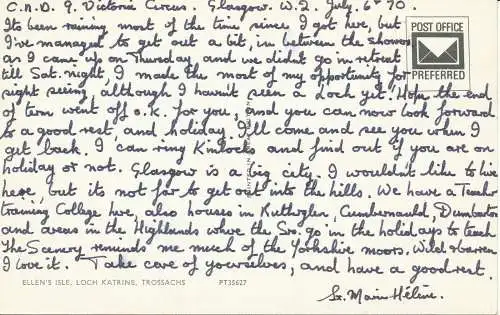 C.N.D. 9. Victoria Circus. Glasgow. W.2. July. 6th 70.
Its been raining most of the time since I got here, but
I've managed to get out a bit, in between the showers
as I came up on Thursday and we didn't go in retreat
till Sat. night, I made the most of my opportunity for
sight seeing, although I havn't seen a Loch yet. Hope the end
of term went off o.k. for you, and you can now look forward
to a good rest, and holiday. I'll come and see you when I
get back. I can ring Kinlocks and find out if you are on
holiday or not. Glasgow is a big city. I wouldn't like to live
here, but its not far to get out into the hills. We have a Teacher
training College here, also houses in Ruthglen, Cumbernauld, Dumbarton
and areas in the Highlands where the Srs. go in the holidays to teach
The Scenery reminds me much of the Yorkshire moors. Wild & barren
I love it. Take care of yourselves, and have a good rest.
Sr. Marie Hélène.
POST OFFICE
PREFERRED
ELLEN'S ISLE, LOCH KATRINE, TROSSACHS PT35627